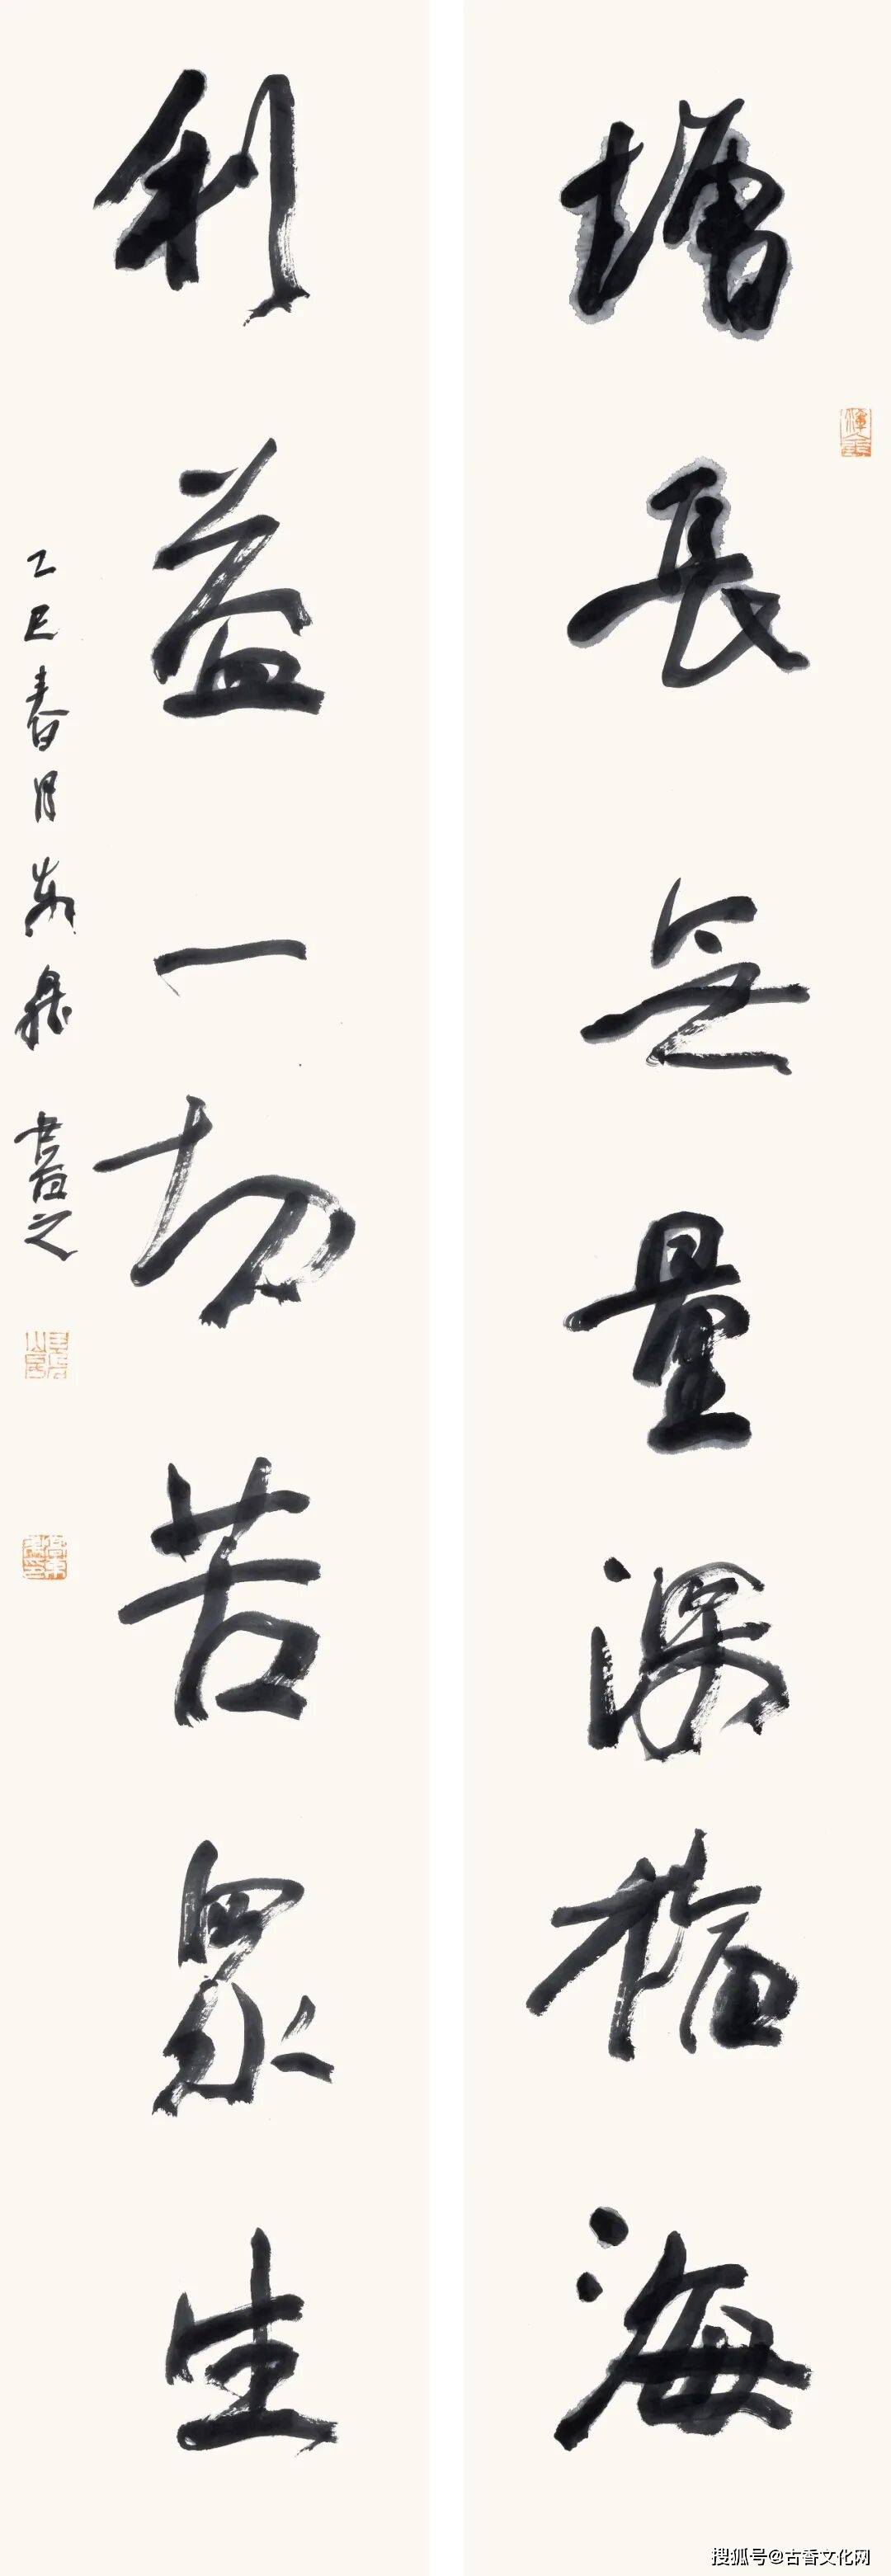 增長無量深福海
利益一切苦眾生
乙巳春月 書之
搜狐号@古香文化网